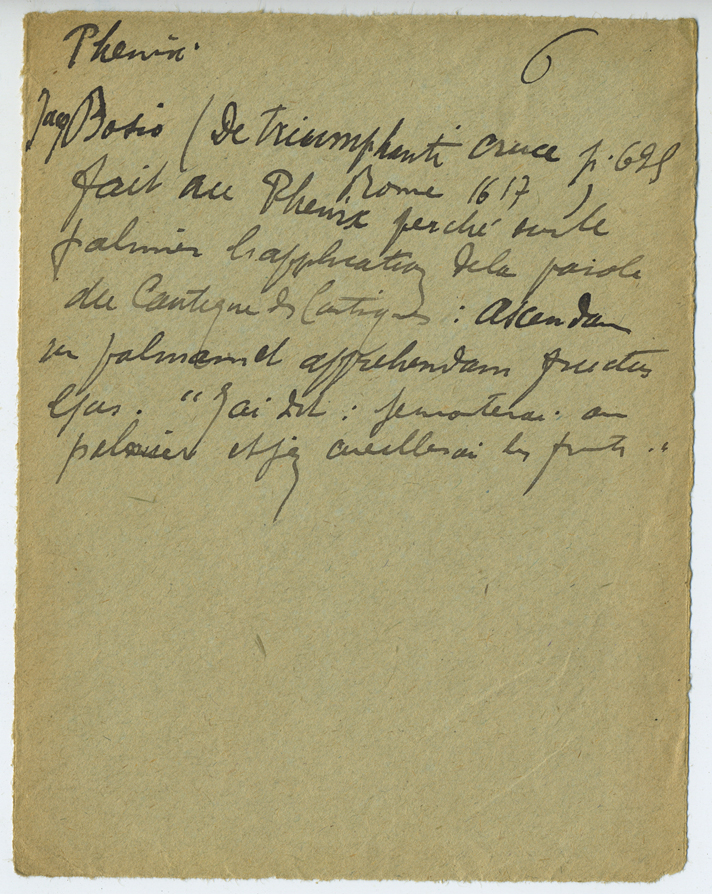 Phenix.
6
Jacq Bosio (De triumphanti cruce p. 625
Rome 1617 )
fait au Phenix perché sur le
palmier l'application de la parole
du Cantique des Cantiques : ascendam
in palmam et apprehendam fructus
ejus. "J'ai dit : je monterai au
palmier et j'en cueillerai les fruits."